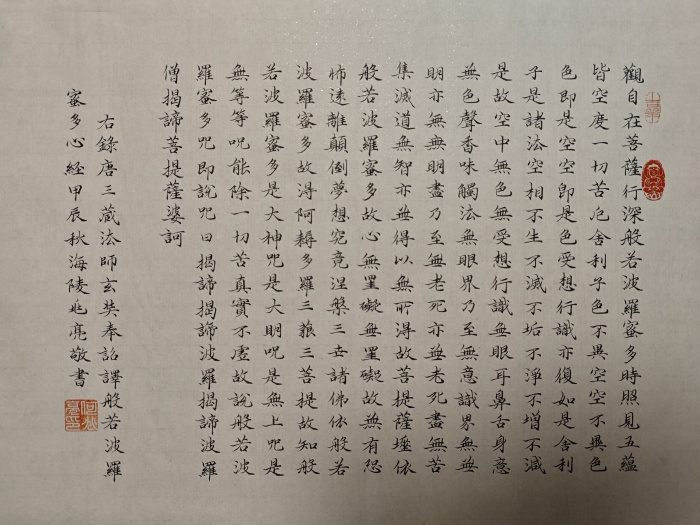 觀自在菩薩行深般若波羅蜜多時照見五蘊
皆空度一切苦厄舍利子色不異空空不異色
色即是空空即是色受想行識亦復如是舍利
子是諸法空相不生不滅不垢不淨不增不減
是故空中無色無受想行識無眼耳鼻舌身意
無色聲香味觸法無眼界乃至無意識界無無
明亦無無明盡乃至無老死亦無老死盡無苦
集滅道無智亦無得以無所得故菩提薩埵依
般若波羅蜜多故心無罣礙無罣礙故無有恐
怖遠離顛倒夢想究竟涅槃三世諸佛依般若
波羅蜜多故得阿耨多羅三藐三菩提故知般
若波羅蜜多是大神咒是大明咒是無上咒是
無等等咒能除一切苦真實不虛故說般若波
羅蜜多咒即說咒曰揭諦揭諦波羅揭諦波羅
僧揭諦菩提薩婆訶
右錄唐三藏法師玄奘奉詔譯般若波羅
蜜多心經甲辰秋海陵兆亮敬書